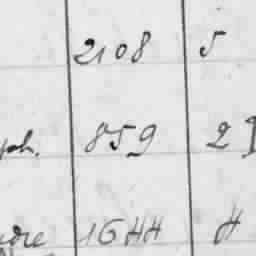 2108 5
ph. 859 2
dre 1644 4